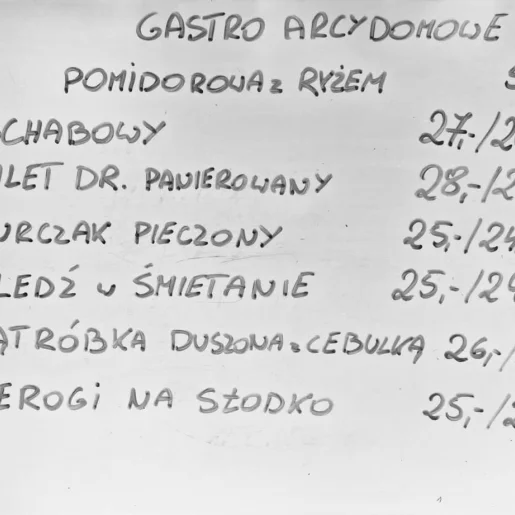 GASTRO ARCYDOMOWE
POMIDOROWA z RYŻEM
CHABOWY 27,-/2
LET DR. PANIEROWANY 28,-/2
URCZAK PIECZONY 25,-/24
LEDŹ w ŚMIETANIE 25,-/24
ĄTRÓBKA DUSZONA z CEBULKĄ 26,-/
EROGI NA SŁODKO 25,-/2